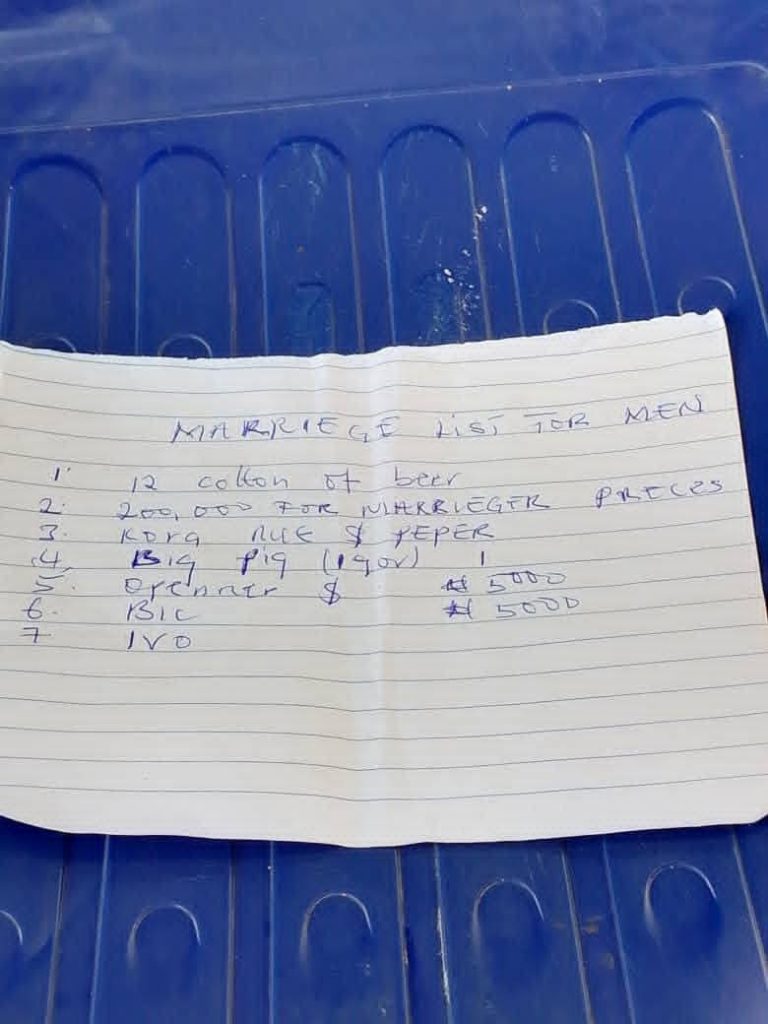 MARRIEGE LIST FOR MEN
1. 12 cotton of beer
2. 200,000 FOR MARRIEGER PRECES
3. KORA NUE $ PEPER
4. Big pig (Igov) 1
5. Openner $ ₦ 5000
6. BIC ₦ 5000
7 IVO